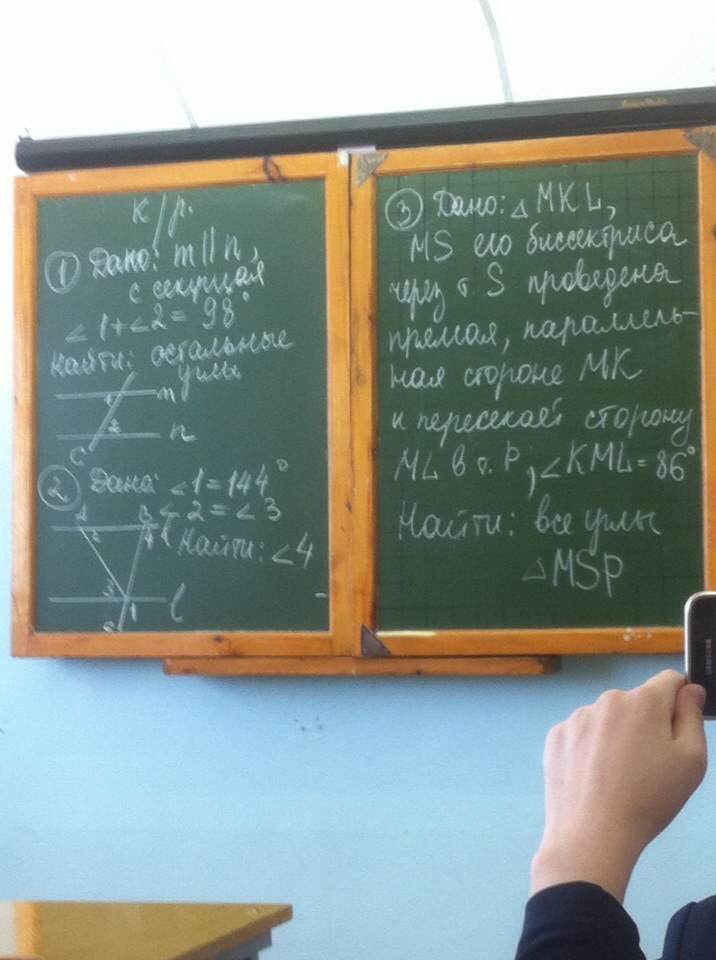 к/р.
① Дано: m || n,
с секущая
∠1+∠2 = 98°
Найти: остальные
углы
m
1
2
n
c
② Дано: ∠1 = 144°
∠2 = ∠3
Найти: ∠4
2
4
k
3
1
l
③ Дано: △MKL,
MS его биссектриса
через т S проведена
прямая, параллель-
ная стороне MK
и пересекает сторону
ML в т. P, ∠KML = 86°
Найти: все углы
△MSP
SAMSUNG